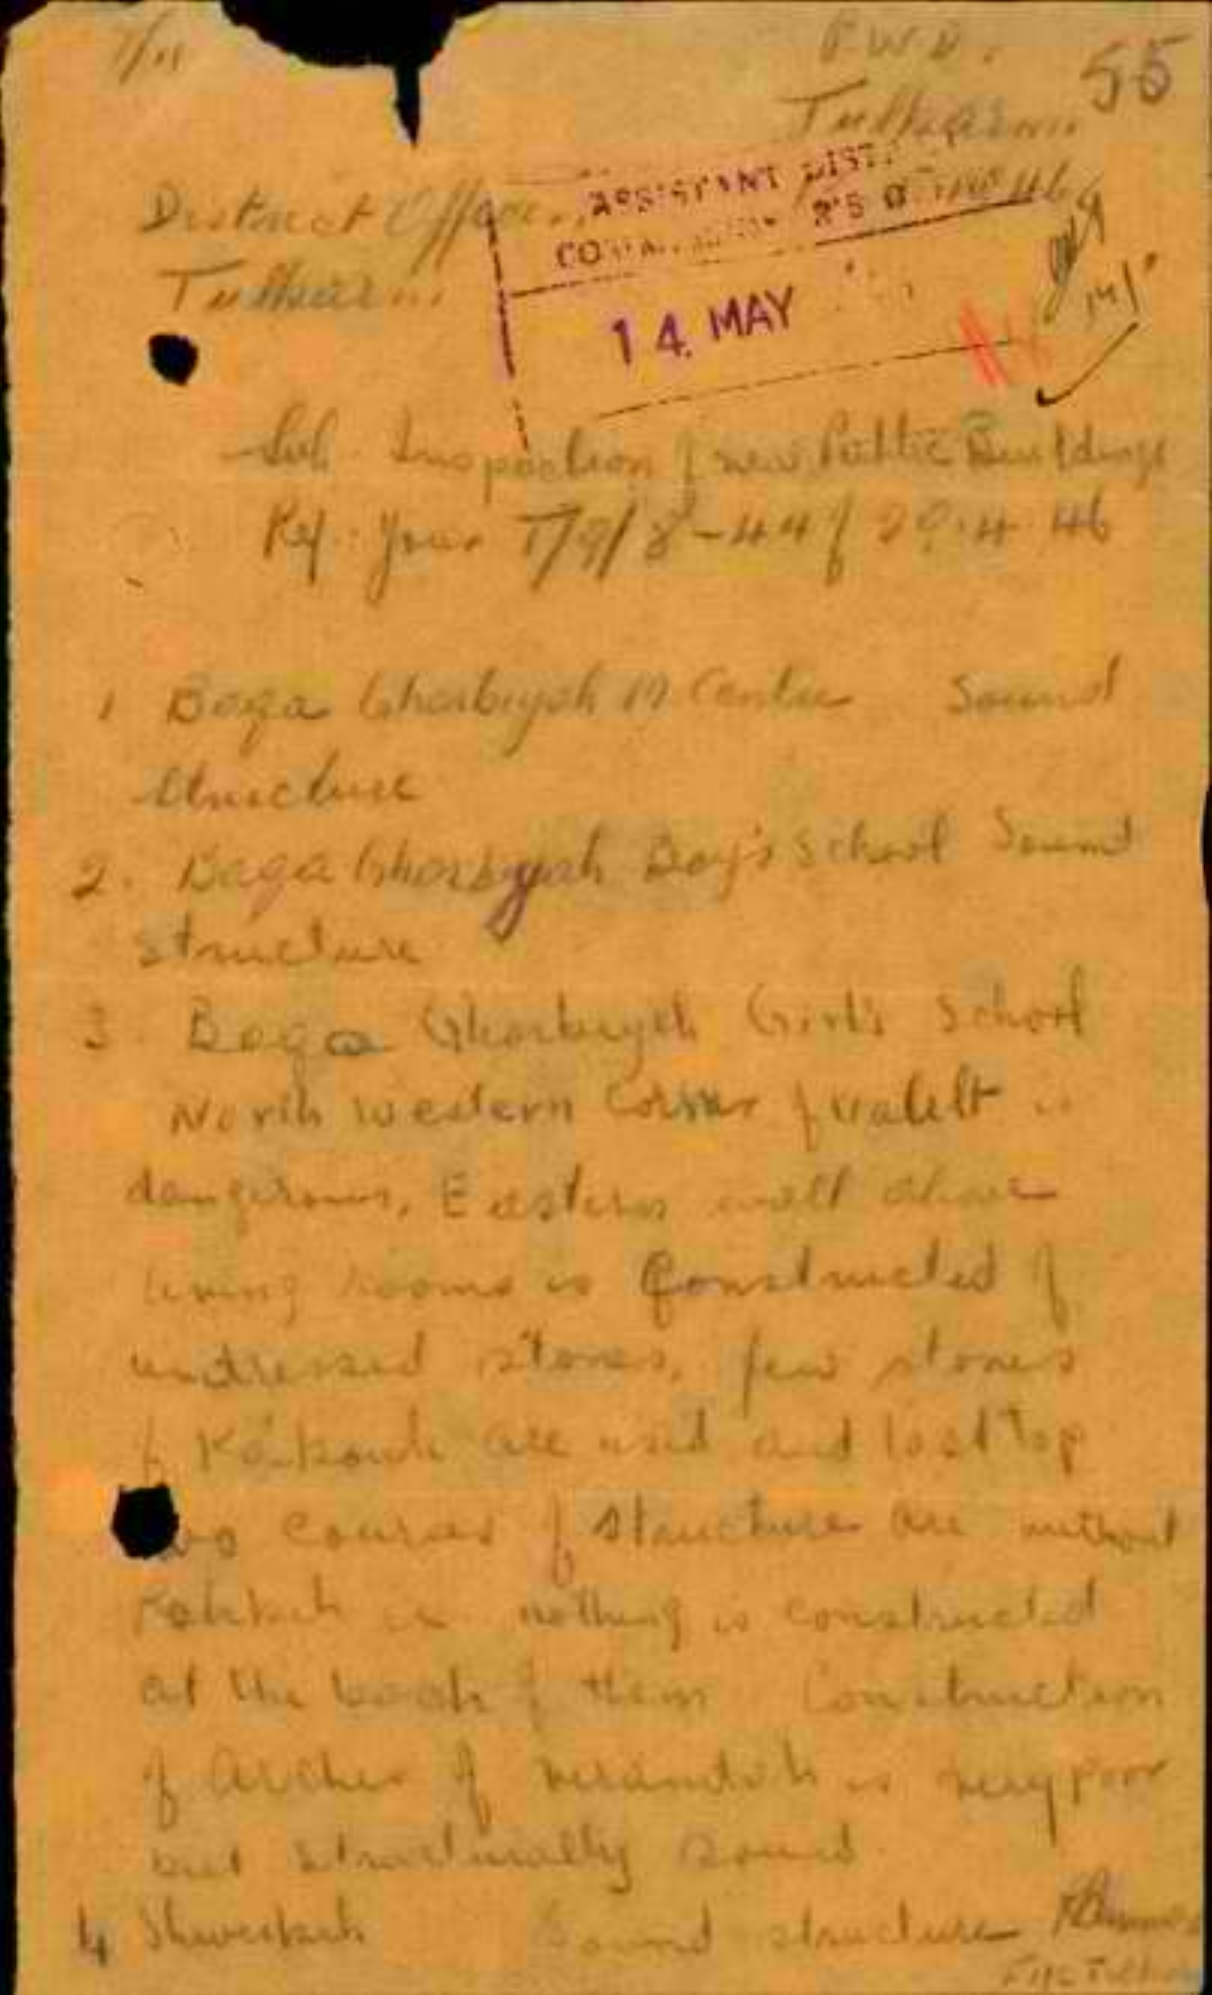 P.W.D.
55
Tulkarm.
District Officer,
Tulkarm.
ASSISTANT DIST
14. MAY
Sub. Inspection of new Public Buildings
Ref: Your T/9/8-44 of 29.4.46
1 Baqa Gharbiyah M Centre Sound
structure
2. Baqa Gharbiyah Boy's School Sound
structure
3. Baqa Gharbiyeh Girl's School
North western corner of vault is
dangerous, Eastern wall above
living rooms is constructed of
undressed stones, few stones
of are used and last top
two courses of structure are without
nothing is constructed
at the back of them Construction
of Arches of verandah is very poor
but structurally sound.
4 Shweikeh Sound structure